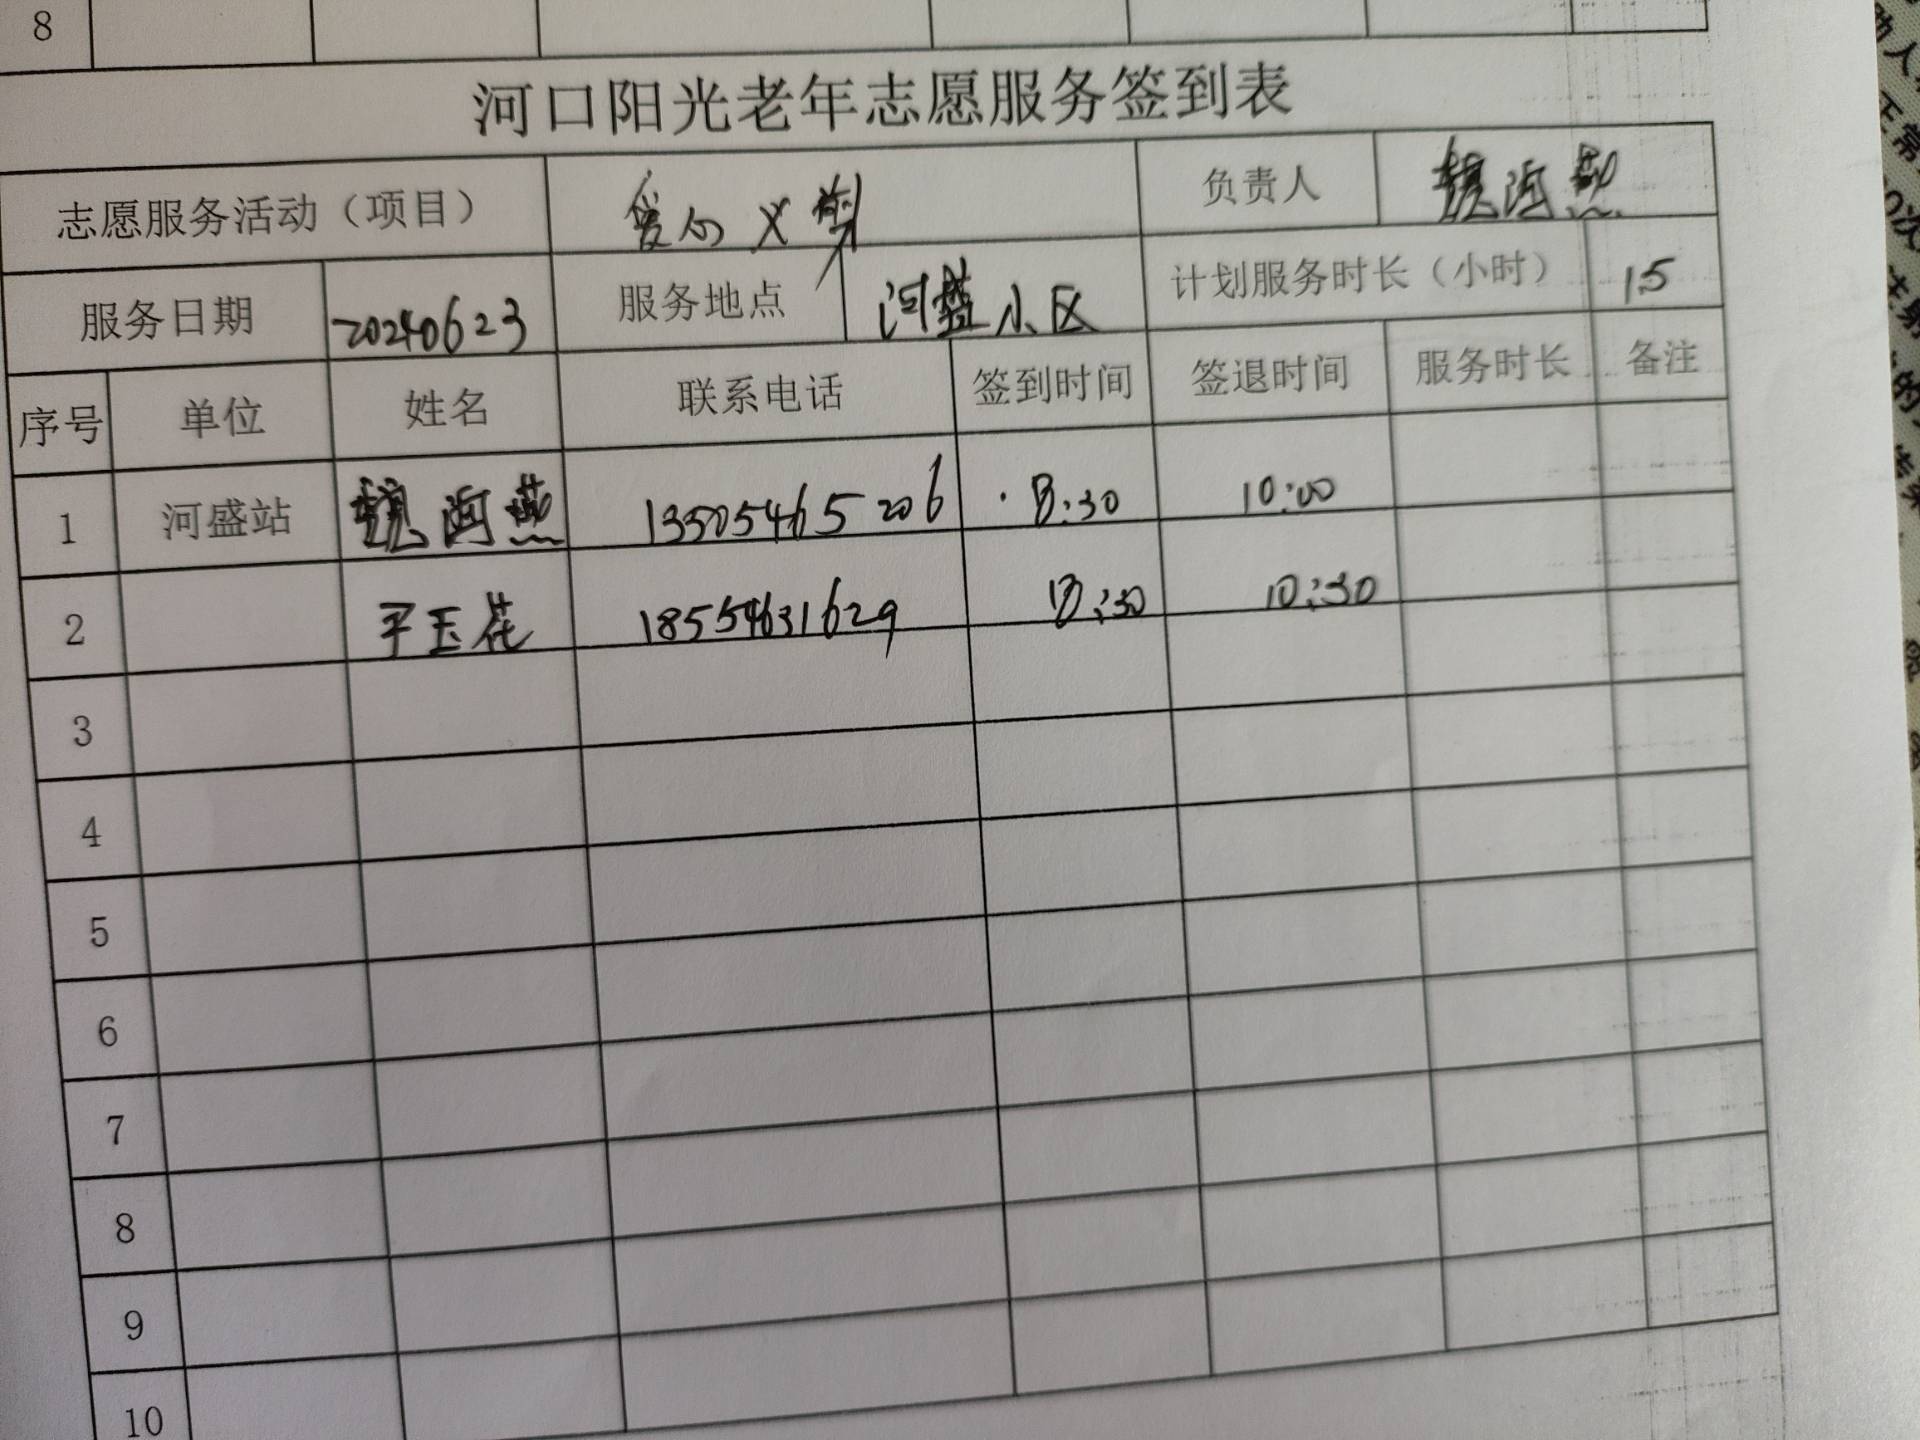 8
河口阳光老年志愿服务签到表
志愿服务活动（项目） 爱心义剪 负责人 魏海燕
服务日期 20240623 服务地点 河盛小区 计划服务时长（小时） 1.5
序号 单位 姓名 联系电话 签到时间 签退时间 服务时长 备注
1 河盛站 魏海燕 13505465206 8:30 10:00
2 玉花 18554631629 8:30 10:30
3
4
5
6
7
8
9
10